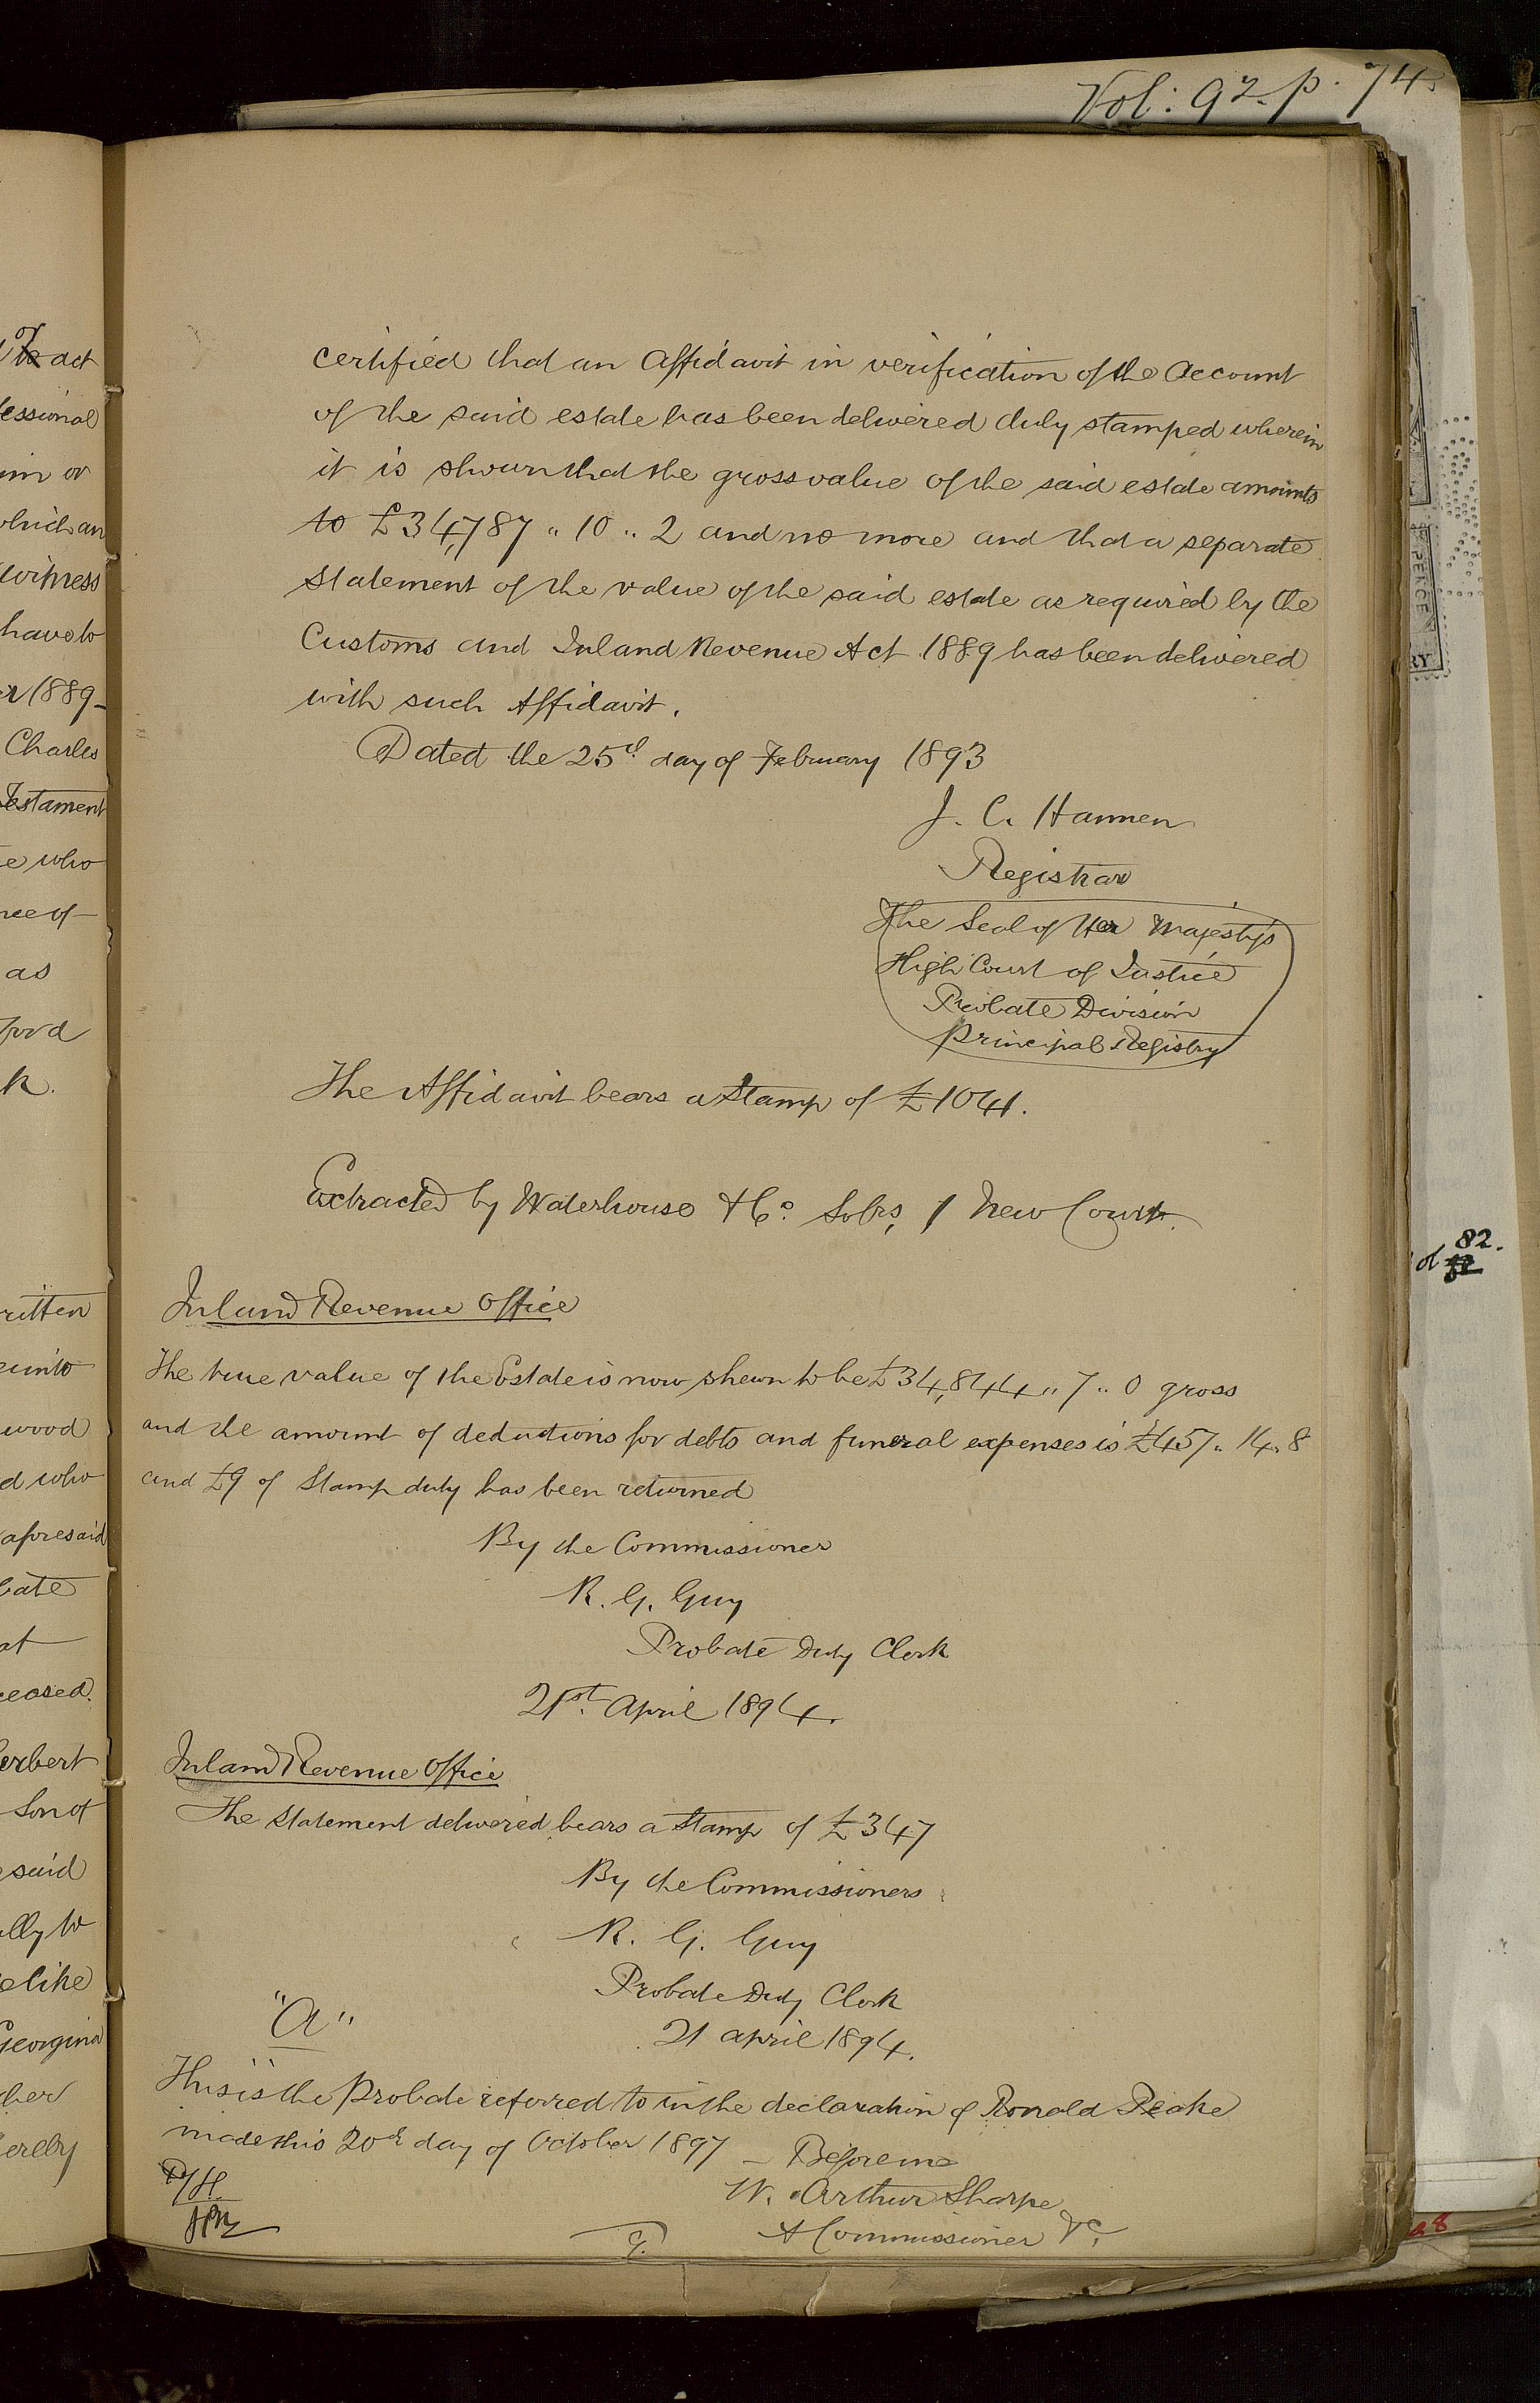 Vol: 92. p. 74.
certified that an Affidavit in verification of the Account
of the said estate has been delivered duly stamped wherein
it is shewn that the gross value of the said estate amounts
to £34,787 " 10 " 2 and no more and that a separate
Statement of the value of the said estate as required by the
Customs and Inland Revenue Act 1889 has been delivered
with such Affidavit.
Dated the 25th day of February 1893
J. C. Hannen
Registrar
The Seal of Her Majesty's
High Court of Justice
Probate Division
Principal Registry
The Affidavit bears a Stamp of £1041.
Extracted by Waterhouse & Co. Solrs, 1 New Court.
Inland Revenue Office
The true value of the Estate is now shewn to be £34,844 " 7 " 0 gross
and the amount of deductions for debts and funeral expenses is £457 " 14 " 8
and £9 of Stamp duty has been returned
By the Commissioner
R. G. Guy
Probate Duty Clerk
21st April 1894.
Inland Revenue Office
The statement delivered bears a Stamp of £347
By the Commissioners
R. G. Guy
Probate Duty Clerk
21 April 1894.
"A"
This is the Probate referred to in the declaration of Ronald Peake
made this 20th day of October 1897 – Before me
W. Arthur Sharpe
A Commissioner &c.
act
essional
im or
which an
witness
have to
er 1889 –
Charles
Testament
e who
nce of
as
ford
k.
ritten
eunto
wood
d who
aforesaid
bate
at
ceased.
erbert
Son of
said
ally to
e like
Georgina
her
ereby
PENCE
RY
of 82.
28